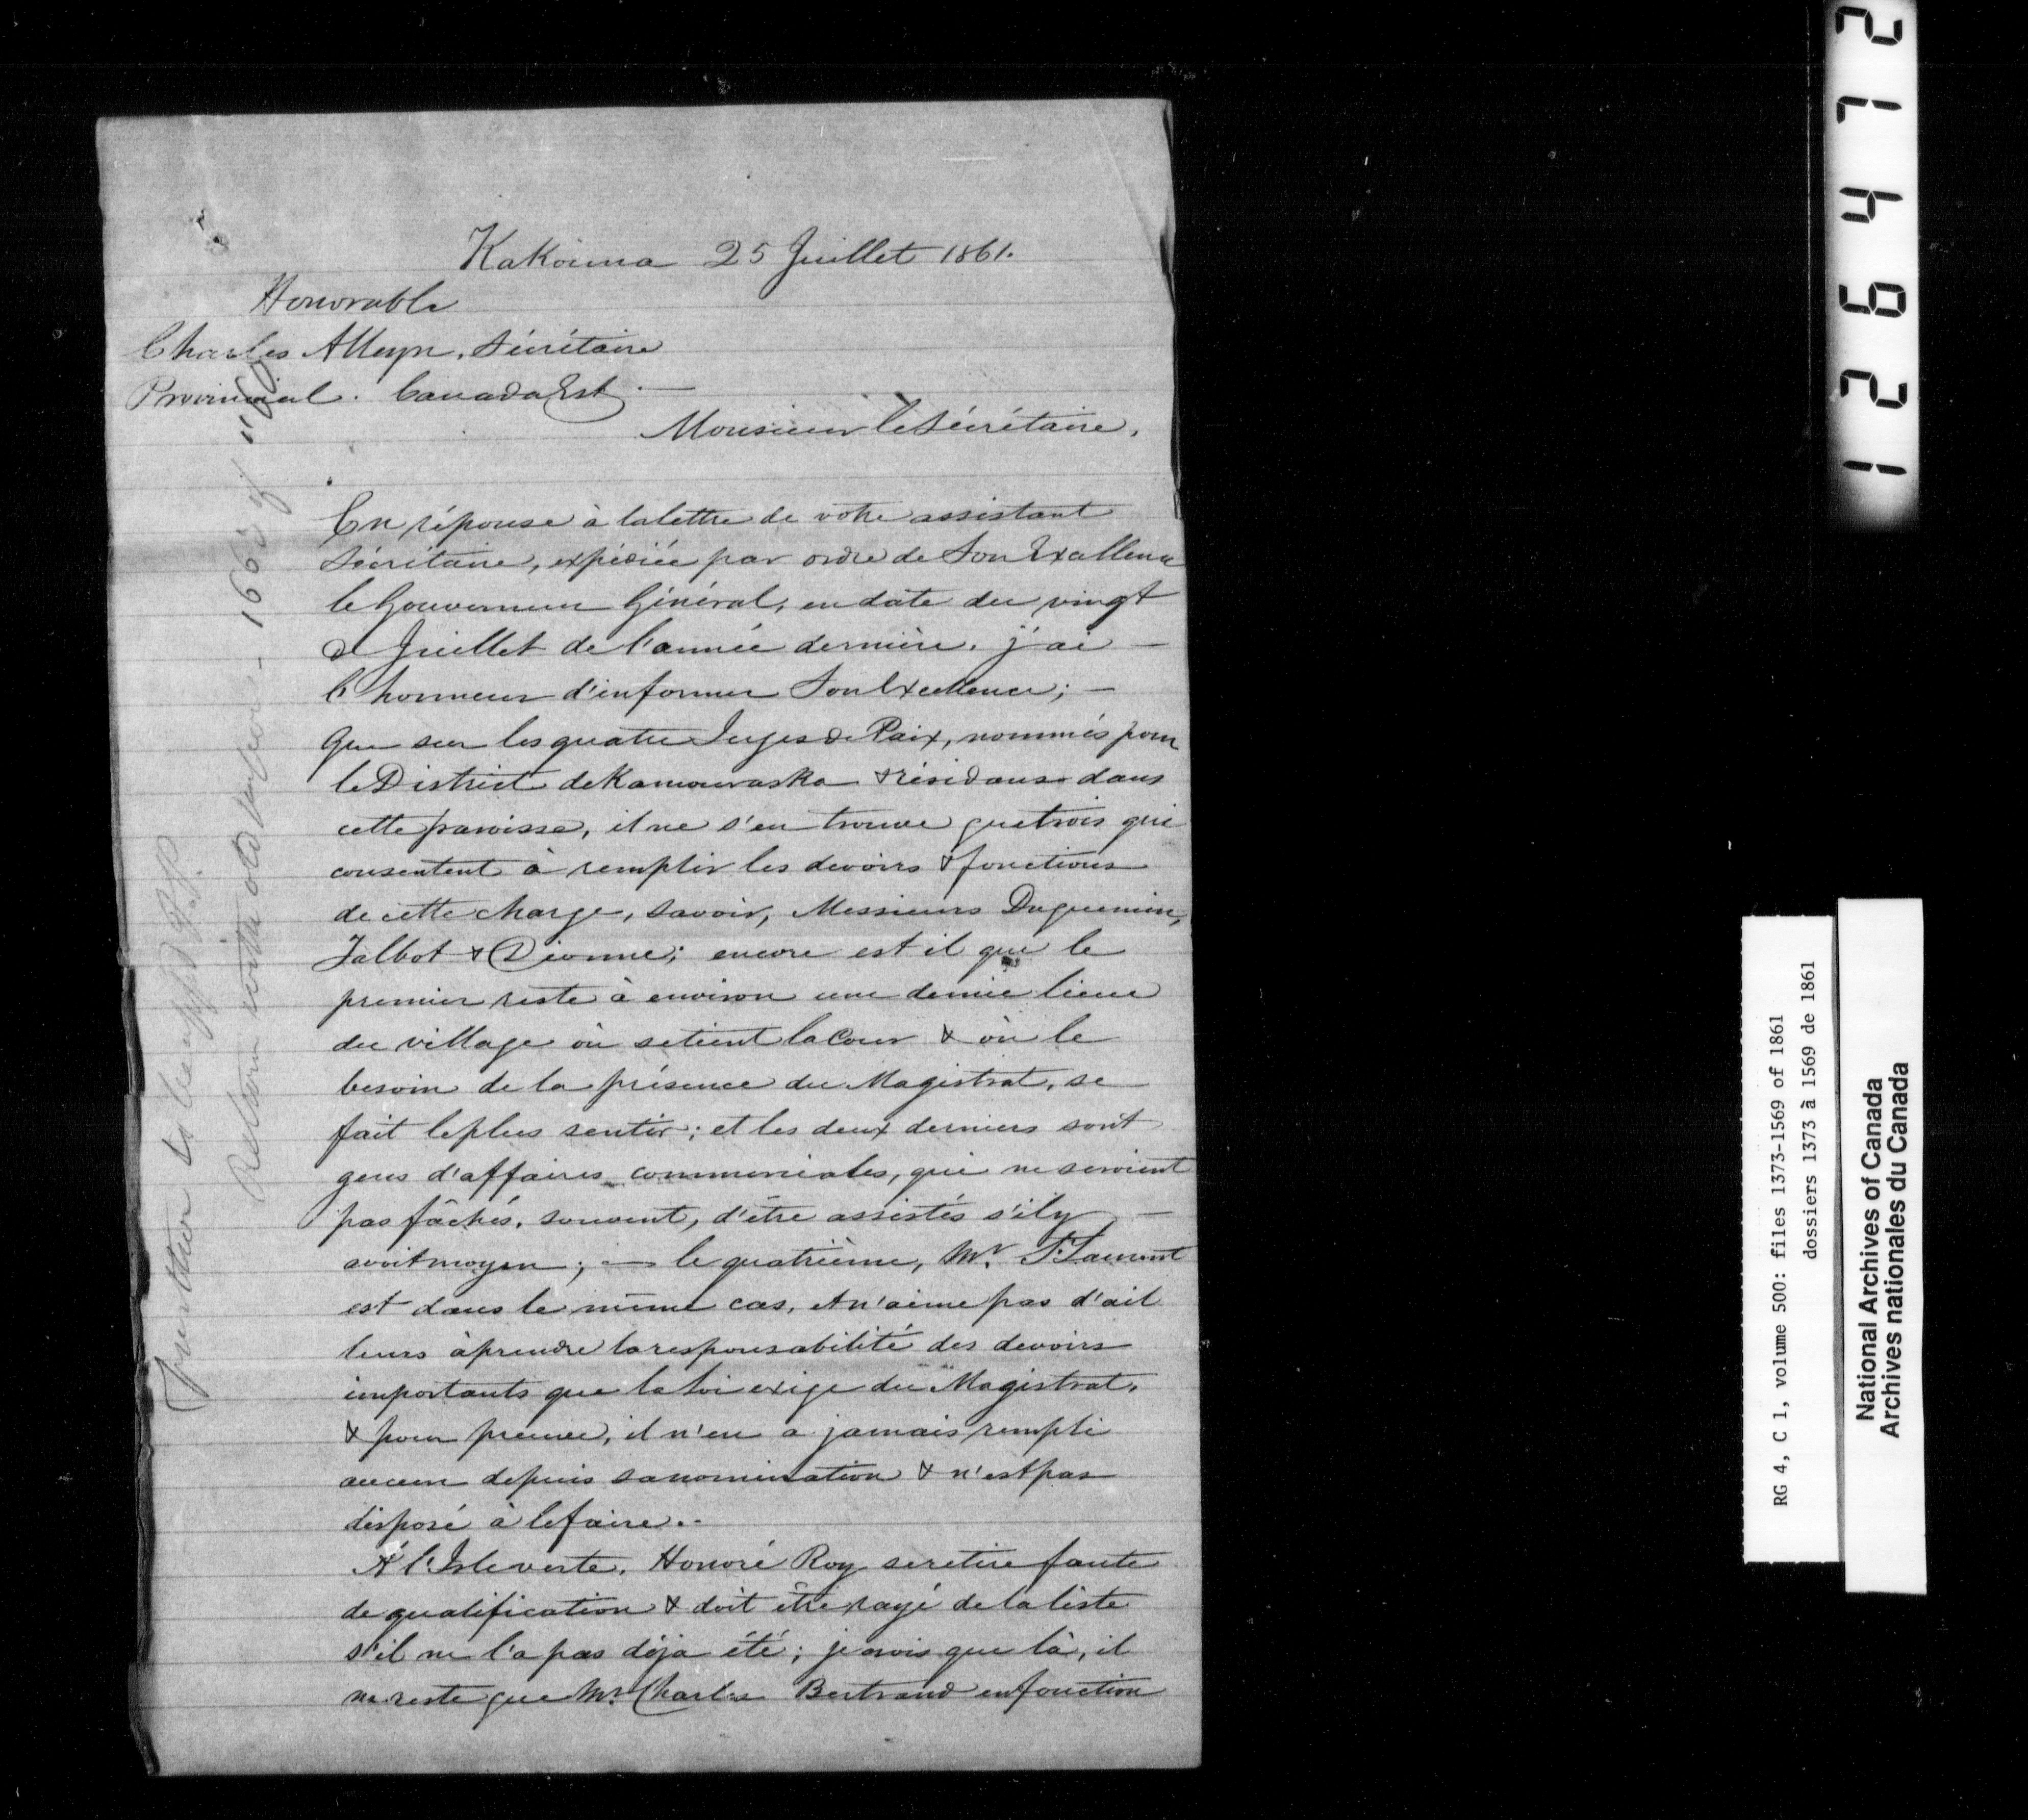 Kakouna 25 Juillet 1861.
Honorable
Charles Alleyn, Sécrétaire
Provincial. Canada Est. —
Monsieur le Sécrétaire,
En réponse à la lettre de votre assistant
Sécrétaire, expédiée par ordre de Son Excellence
le Gouverneur Général, en date du vingt
de Juillet de l'année dernière, j'ai —
l'honneur d'informer Son Excellence; —
Que sur les quatre Juges de Paix, nommés pour
le District de Kamouraska & résidans dans
cette paroisse, il ne s'en trouve que trois qui
consentent à remplir les devoirs & fonctions
de cette charge, savoir, Messieurs Duguemin,
Talbot & Dionne; encore est il que le
premier reste à environ une demie lieue
du village où se tient la Cour & où le
besoin de la présence du Magistrat, se
fait le plus sentir; et les deux derniers sont
gens d'affaires commerciales, qui ne seroient
pas fâchés, souvent, d'être assistés s'il y —
avoit moyen; — le quatrième, Mr.
est dans le même cas, et n'aime pas d'ail
leurs à prendre la responsabilité des devoirs
importants que la loi exige du Magistrat,
& pour preuve, il n'en a jamais rempli
aucun depuis sa nomination & n'est pas
disposé à le faire. -
A l'Isle verte, Honoré Roy se retire faute
de qualification & doit être rayé de la liste
s'il ne l'a pas déja été; je crois que là, il
ne reste que Mr. Charles Bertrand en fonction
Further to be appd J.P.
Return with old — 1663 of "60
126472
RG 4, C 1, volume 500: files 1373-1569 of 1861
dossiers 1373 à 1569 de 1861
National Archives of Canada
Archives nationales du Canada